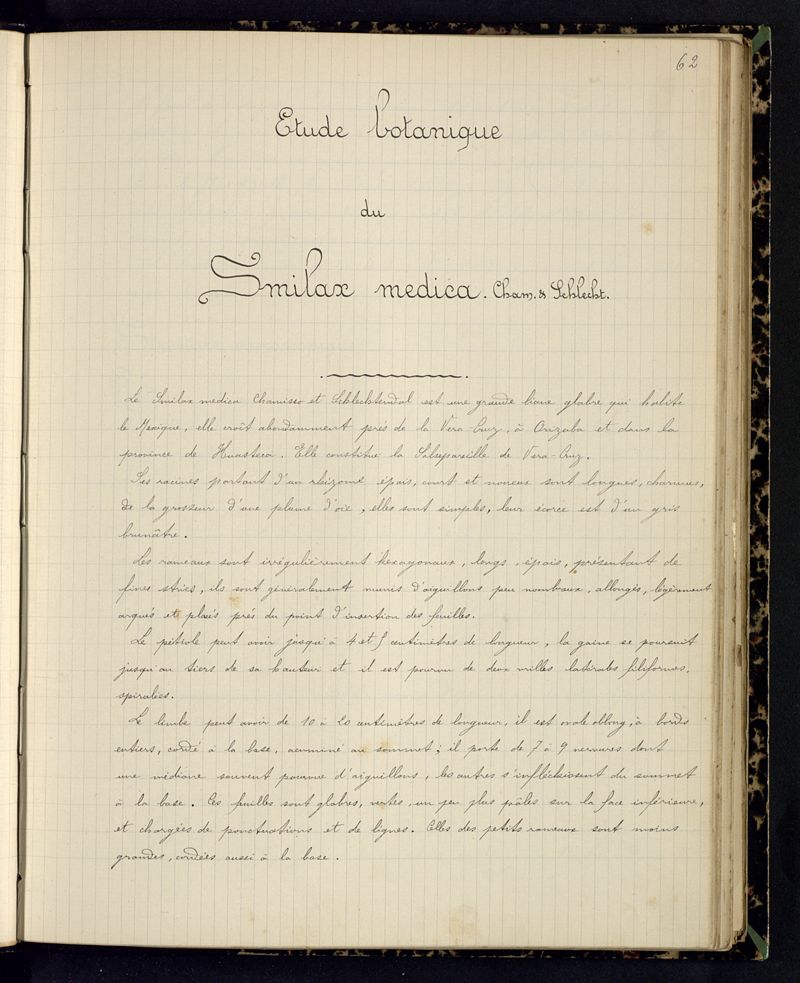 62
Etude botanique
du
Smilax medica. Cham. & Schlecht.
Le Smilax medica Chamisso et Schlechtendal est une grande liane glabre qui habite
le Mexique, elle croît abondamment près de la Vera-Cruz, à Orizaba et dans la
province de Huasteca. Elle constitue la Salsepareille de Vera-Cruz.
Ses racines partant d'un rhizome épais, court et noueux sont longues, charnues,
de la grosseur d'une plume d'oie, elles sont simples, leur écorce est d'un gris
brunâtre.
Les rameaux sont irrégulièrement hexagonaux, longs, épais, présentant de
fines stries, ils sont généralement munis d'aiguillons peu nombreux, allongés, légèrement
arqués et placés près du point d'insertion des feuilles.
Le pétiole peut avoir jusqu'à 4 et 5 centimètres de longueur, la gaine se poursuit
jusqu'au tiers de sa hauteur et il est pourvu de deux vrilles latérales filiformes,
spiralées.
Le limbe peut avoir de 10 à 20 centimètres de longueur, il est ovale oblong, à bords
entiers, cordé à la base, acuminé au sommet; il porte de 7 à 9 nervures dont
une médiane souvent pourvue d'aiguillons, les autres s'infléchissent du sommet
à la base. Ces feuilles sont glabres, vertes, un peu plus pâles sur la face inférieure,
et chargées de ponctuations et de lignes. Celles des petits rameaux sont moins
grandes, cordées aussi à la base.